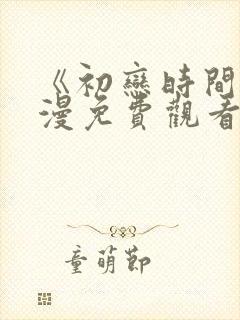 《初戀時間
漫免費觀看
童萌節